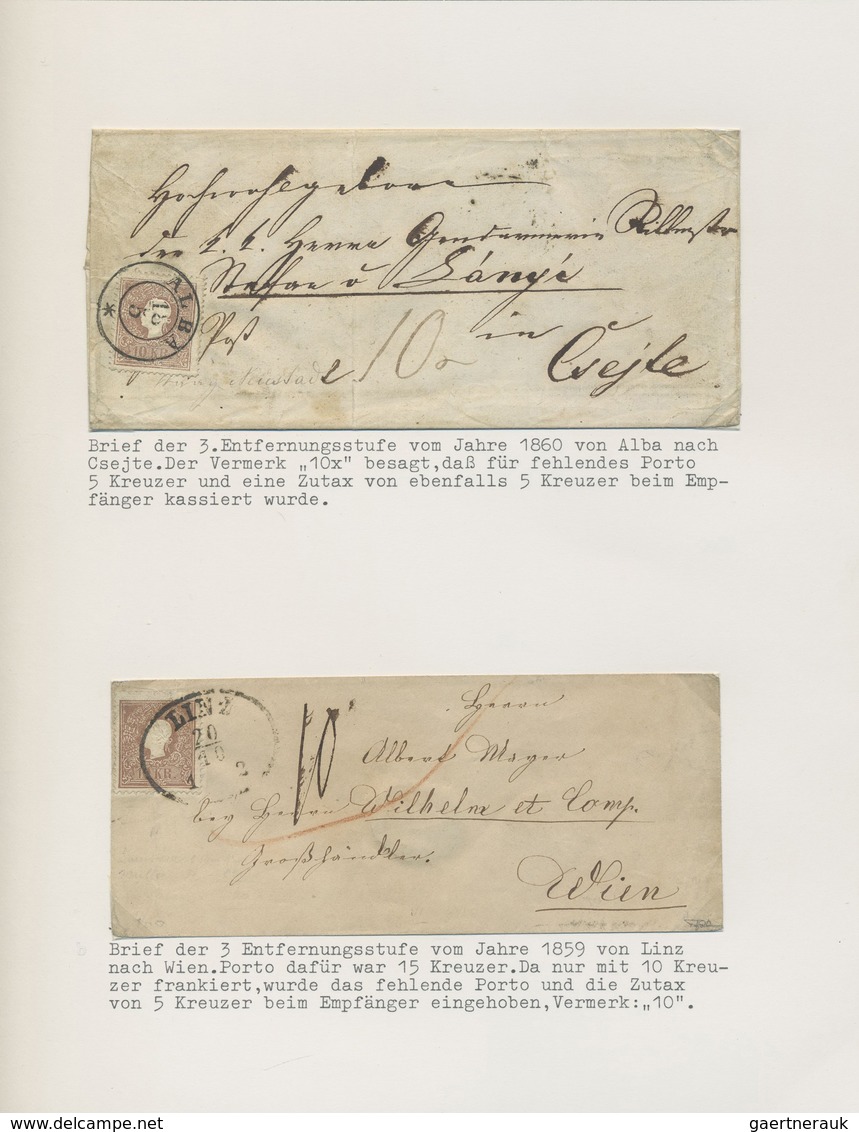 Hochwohlgeboren
k. k. Herrn Gendarmerie Rittmstr
Stefan v Lányi
ALBA
13
5
*
10 KR
Post
10x
in
Neustadl
Csejte
Brief der 3.Entfernungsstufe vom Jahre 1860 von Alba nach
Csejte.Der Vermerk „10x" besagt,daß für fehlendes Porto
5 Kreuzer und eine Zutax von ebenfalls 5 Kreuzer beim Emp-
fänger kassiert wurde.
LINZ
20
10
KR.
10
Herrn
Albert Mayer
bey Herrn Wilhelm et Comp.
Großhändler.
Wien
Brief der 3 Entfernungsstufe vom Jahre 1859 von Linz
nach Wien.Porto dafür war 15 Kreuzer.Da nur mit 10 Kreu-
zer frankiert,wurde das fehlende Porto und die Zutax
von 5 Kreuzer beim Empfänger eingehoben,Vermerk:„10".
gaertnerauk